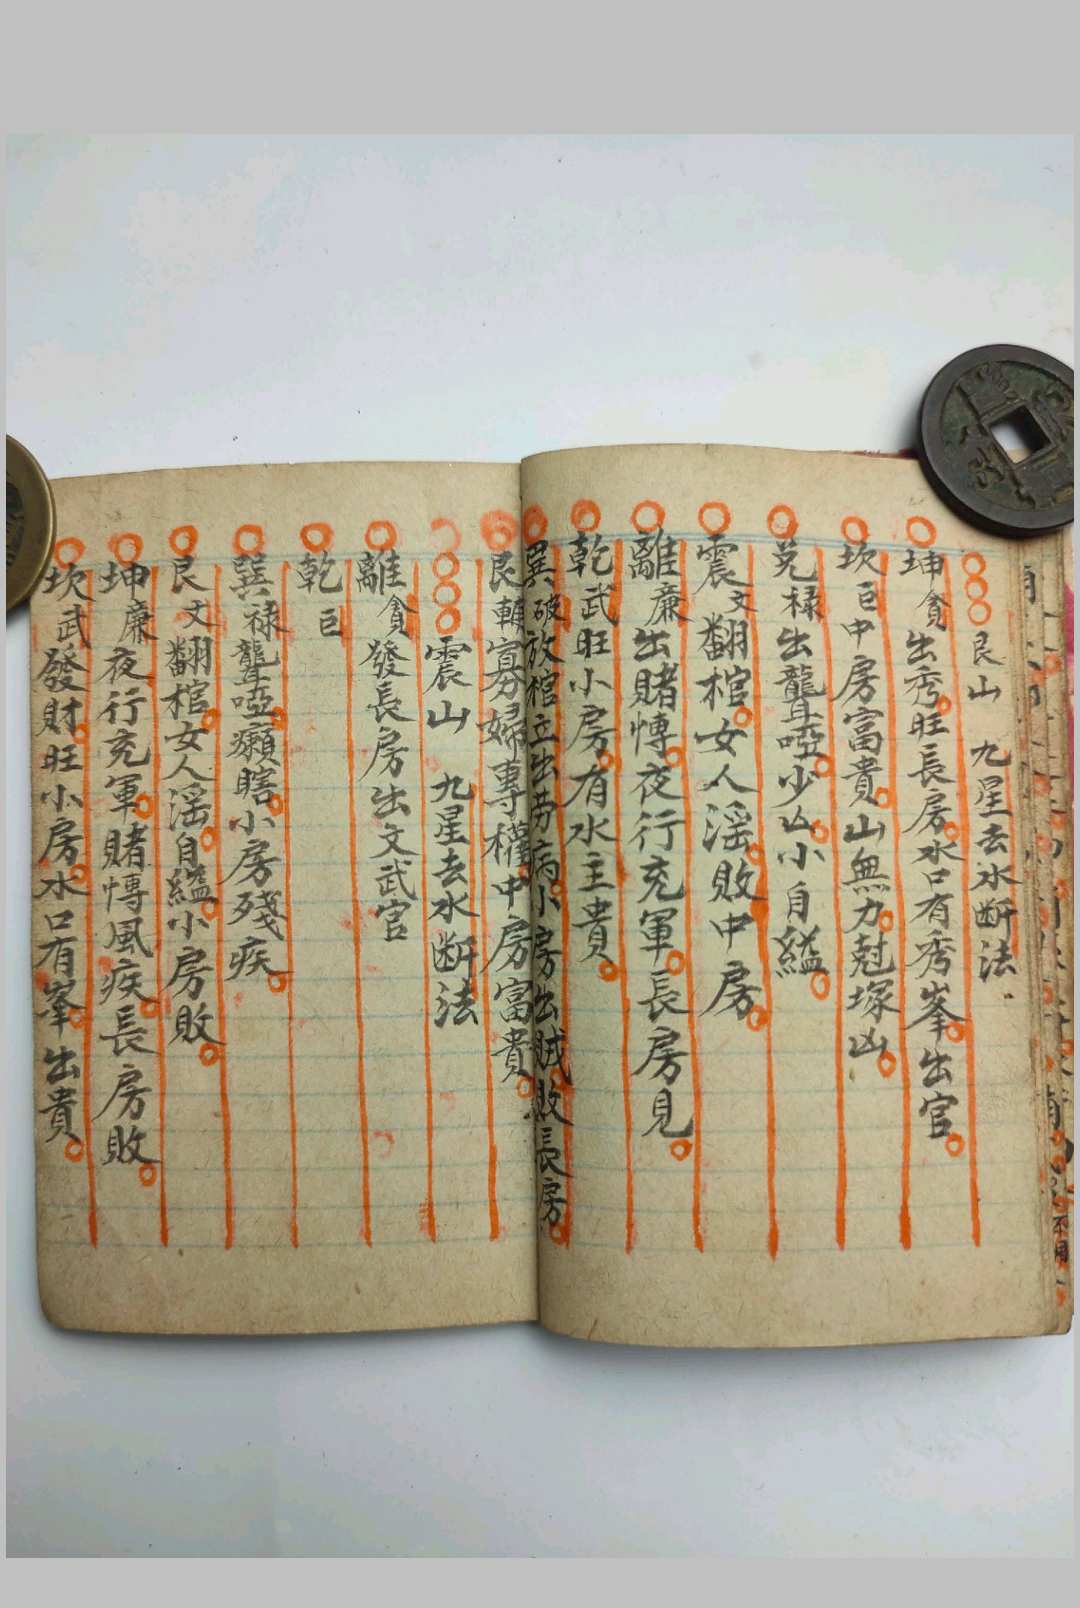 艮山　九星去水断法
坤貪出秀旺長房水口有秀峯出官
坎巨中房富貴山無力尅塚凶
兑禄出聾啞少亾小自縊
震文翻棺女人滛敗中房
離廉出賭愽夜行充軍長房見
乾武旺小房有水主貴
巽破放棺立出劳病小房出賊敗長房
艮輔寡婦專權中房富貴
震山　九星去水断法
離貪發長房出文武官
乾巨
巽禄聾啞癩瞎小房殘疾
艮文翻棺女人滛自縊小房敗
坤廉夜行充軍賭愽風疾長房敗
坎武發財旺小房水口有峯出貴